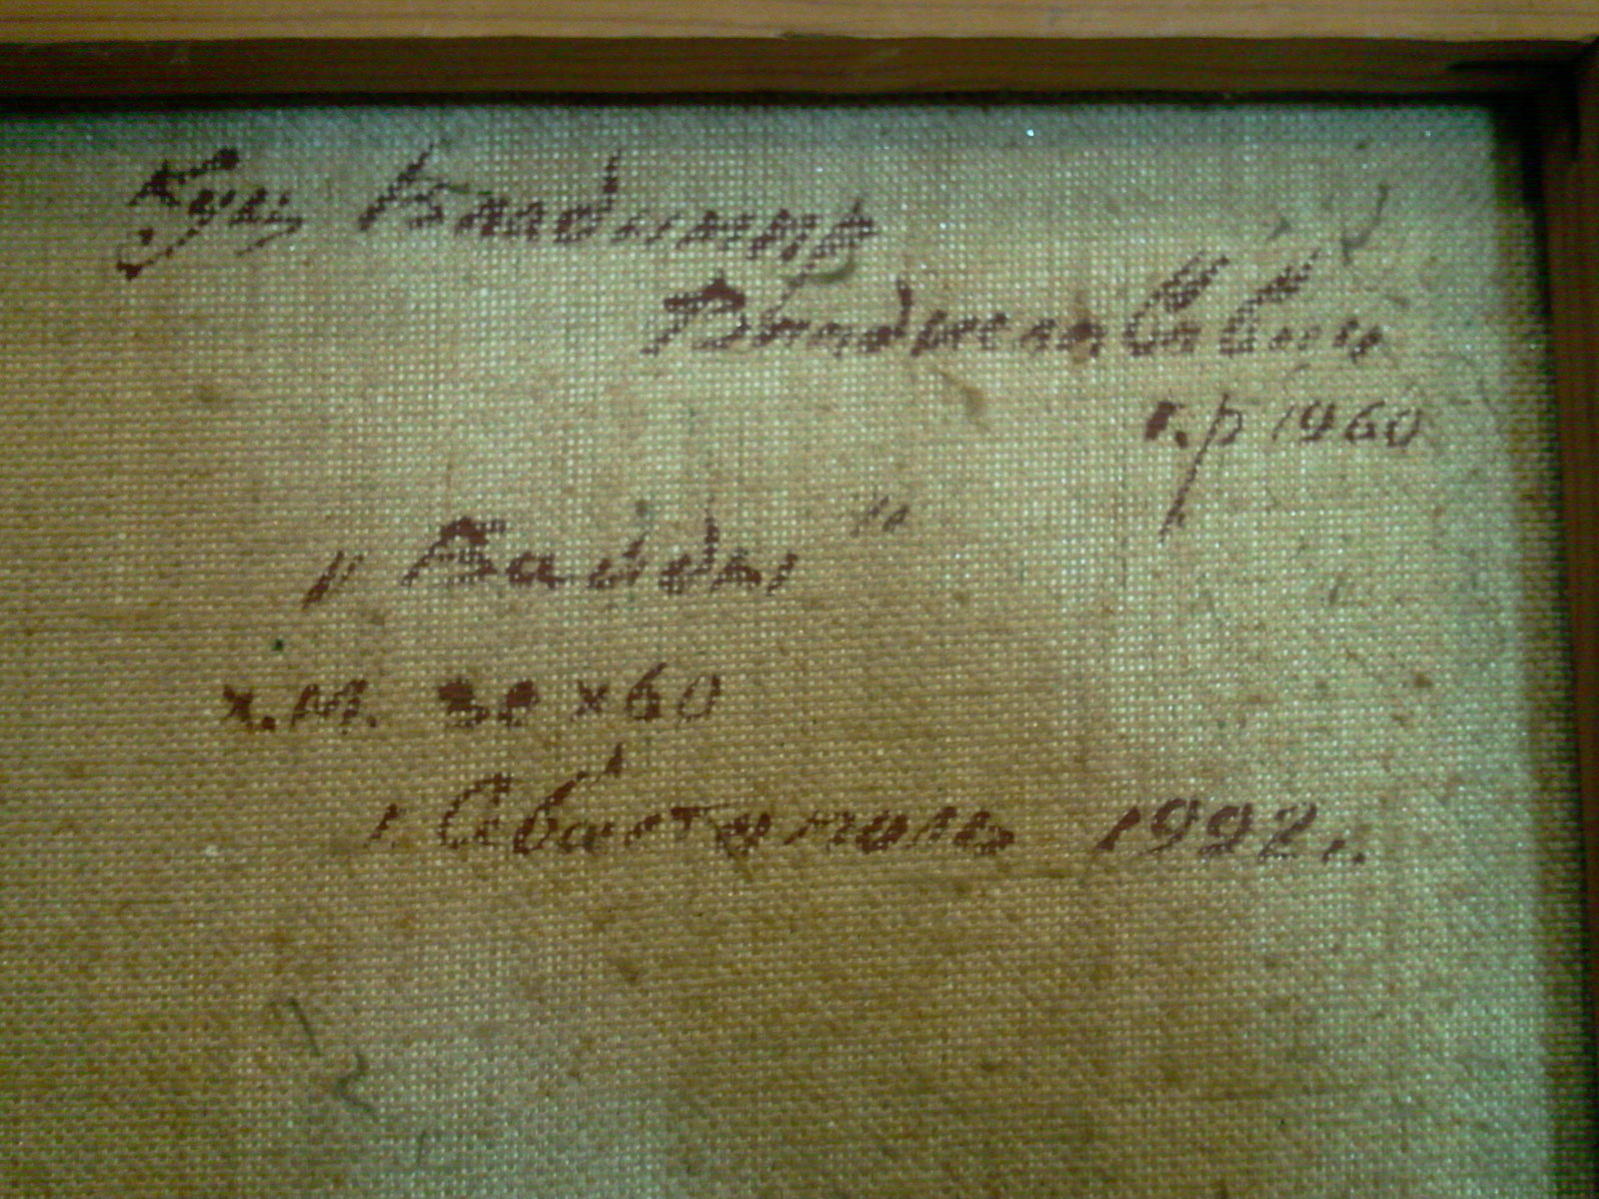 Куц Владимир
Владиславович
г.р 1960
„ Байды "
х.м. 30 x 60
г. Севастополь 1992 г.